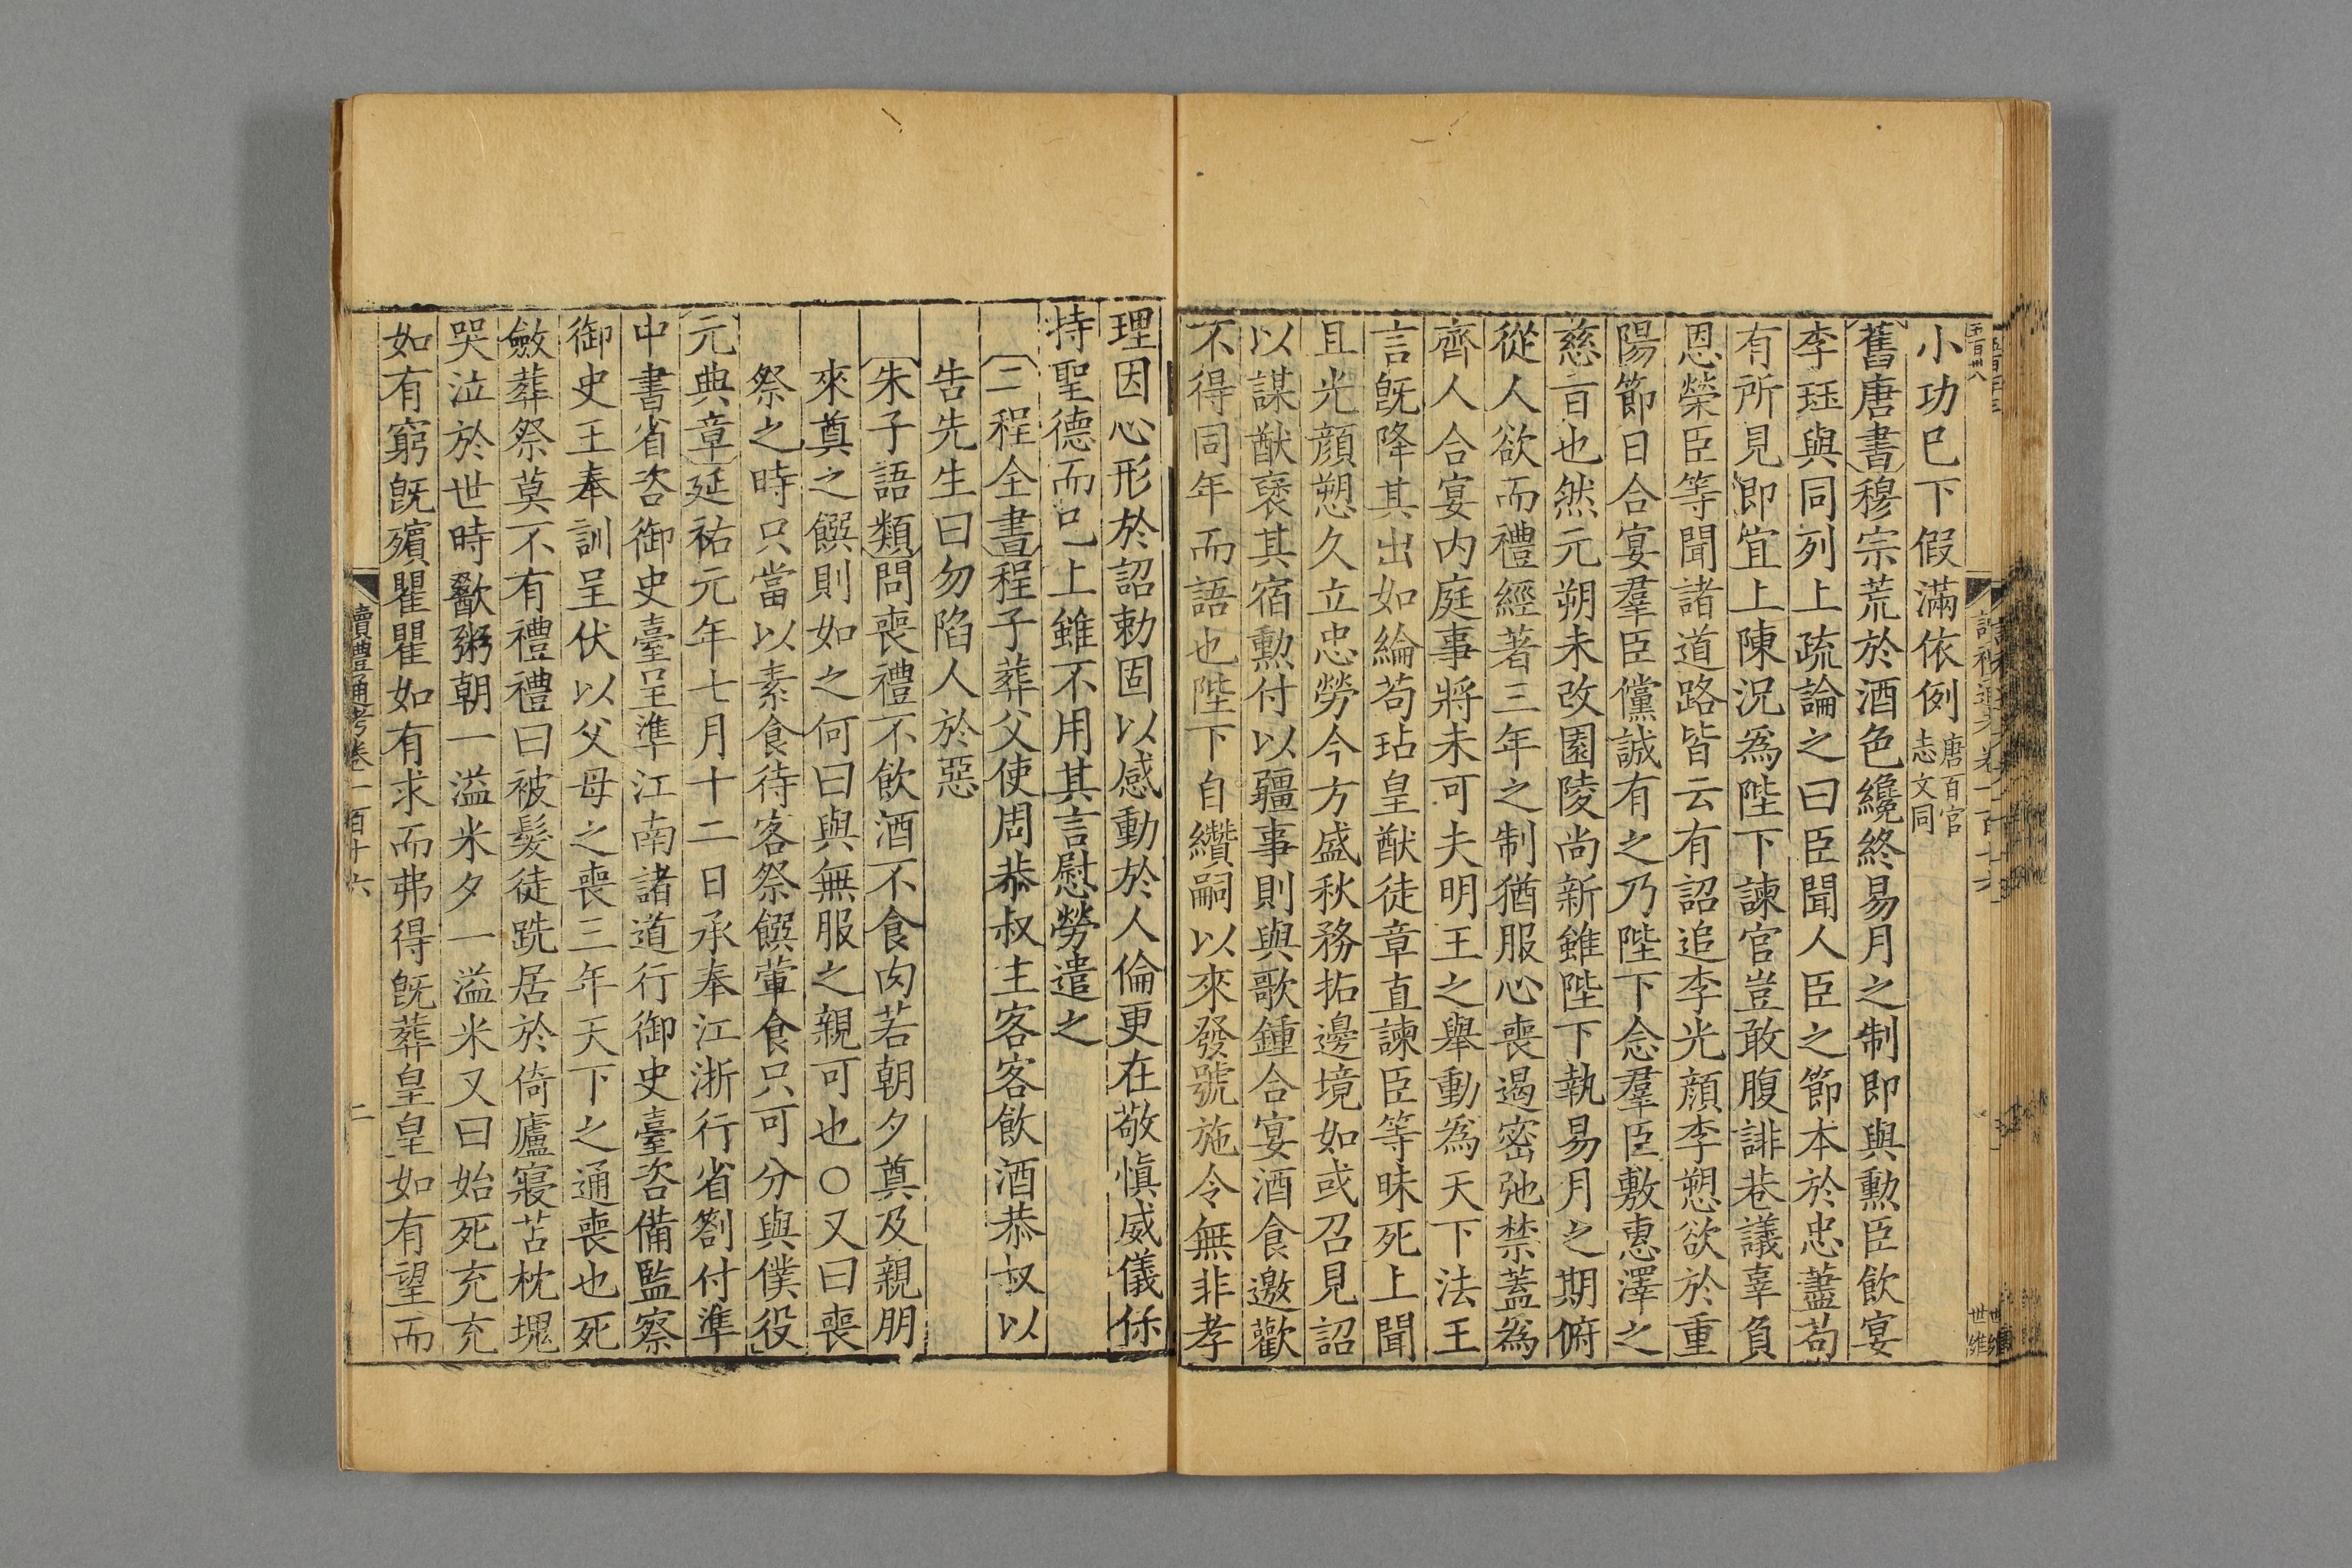 小功巳下假滿依例唐百官志文同
舊唐書穆宗荒於酒色纔終易月之制即與勲臣飲宴
李珏與同列上疏論之曰臣聞人臣之節本於忠藎苟
有所見即宜上陳況為陛下諫官豈敢腹誹巷議辜負
恩榮臣等聞諸道路皆云有詔追李光顔李愬欲於重
陽節日合宴羣臣儻誠有之乃陛下念羣臣敷惠澤之
慈㫖也然元朔未改園陵尚新雖陛下執易月之期俯
從人欲而禮經著三年之制猶服心喪遏密弛禁蓋為
齊人合宴内庭事將未可夫明王之舉動為天下法王
言旣降其出如綸苟玷皇猷徒章直諫臣等昧死上聞
且光顔愬久立忠勞今方盛秋務拓邊境如或召見詔
以謀猷襃其宿勲付以疆事則與歌鍾合宴酒食邀歡
不得同年而語也陛下自纘嗣以來發號施令無非孝
理因心形於詔勅固以感動於人倫更在敬慎威儀保
持聖德而巳上雖不用其言慰勞遣之
二程全書程子葬父使周恭叔主客客飲酒恭叔以
告先生曰勿陷人於惡
朱子語類問喪禮不飲酒不食肉若朝夕奠及親朋
來奠之饌則如之何曰與無服之親可也○又曰喪
祭之時只當以素食待客祭饌葷食只可分與僕役
元典章延祐元年七月十二日承奉江浙行省劄付準
中書省咨御史臺呈準江南諸道行御史臺咨備監察
御史王奉訓呈伏以父母之喪三年天下之通喪也死
斂葬祭莫不有禮禮曰被髮徒跣居於倚廬寢苫枕塊
哭泣於世時歠粥朝一溢米夕一溢米又曰始死充充
如有窮旣殯瞿瞿如有求而弗得旣葬皇皇如有望而
讀禮通考卷一百十六
二